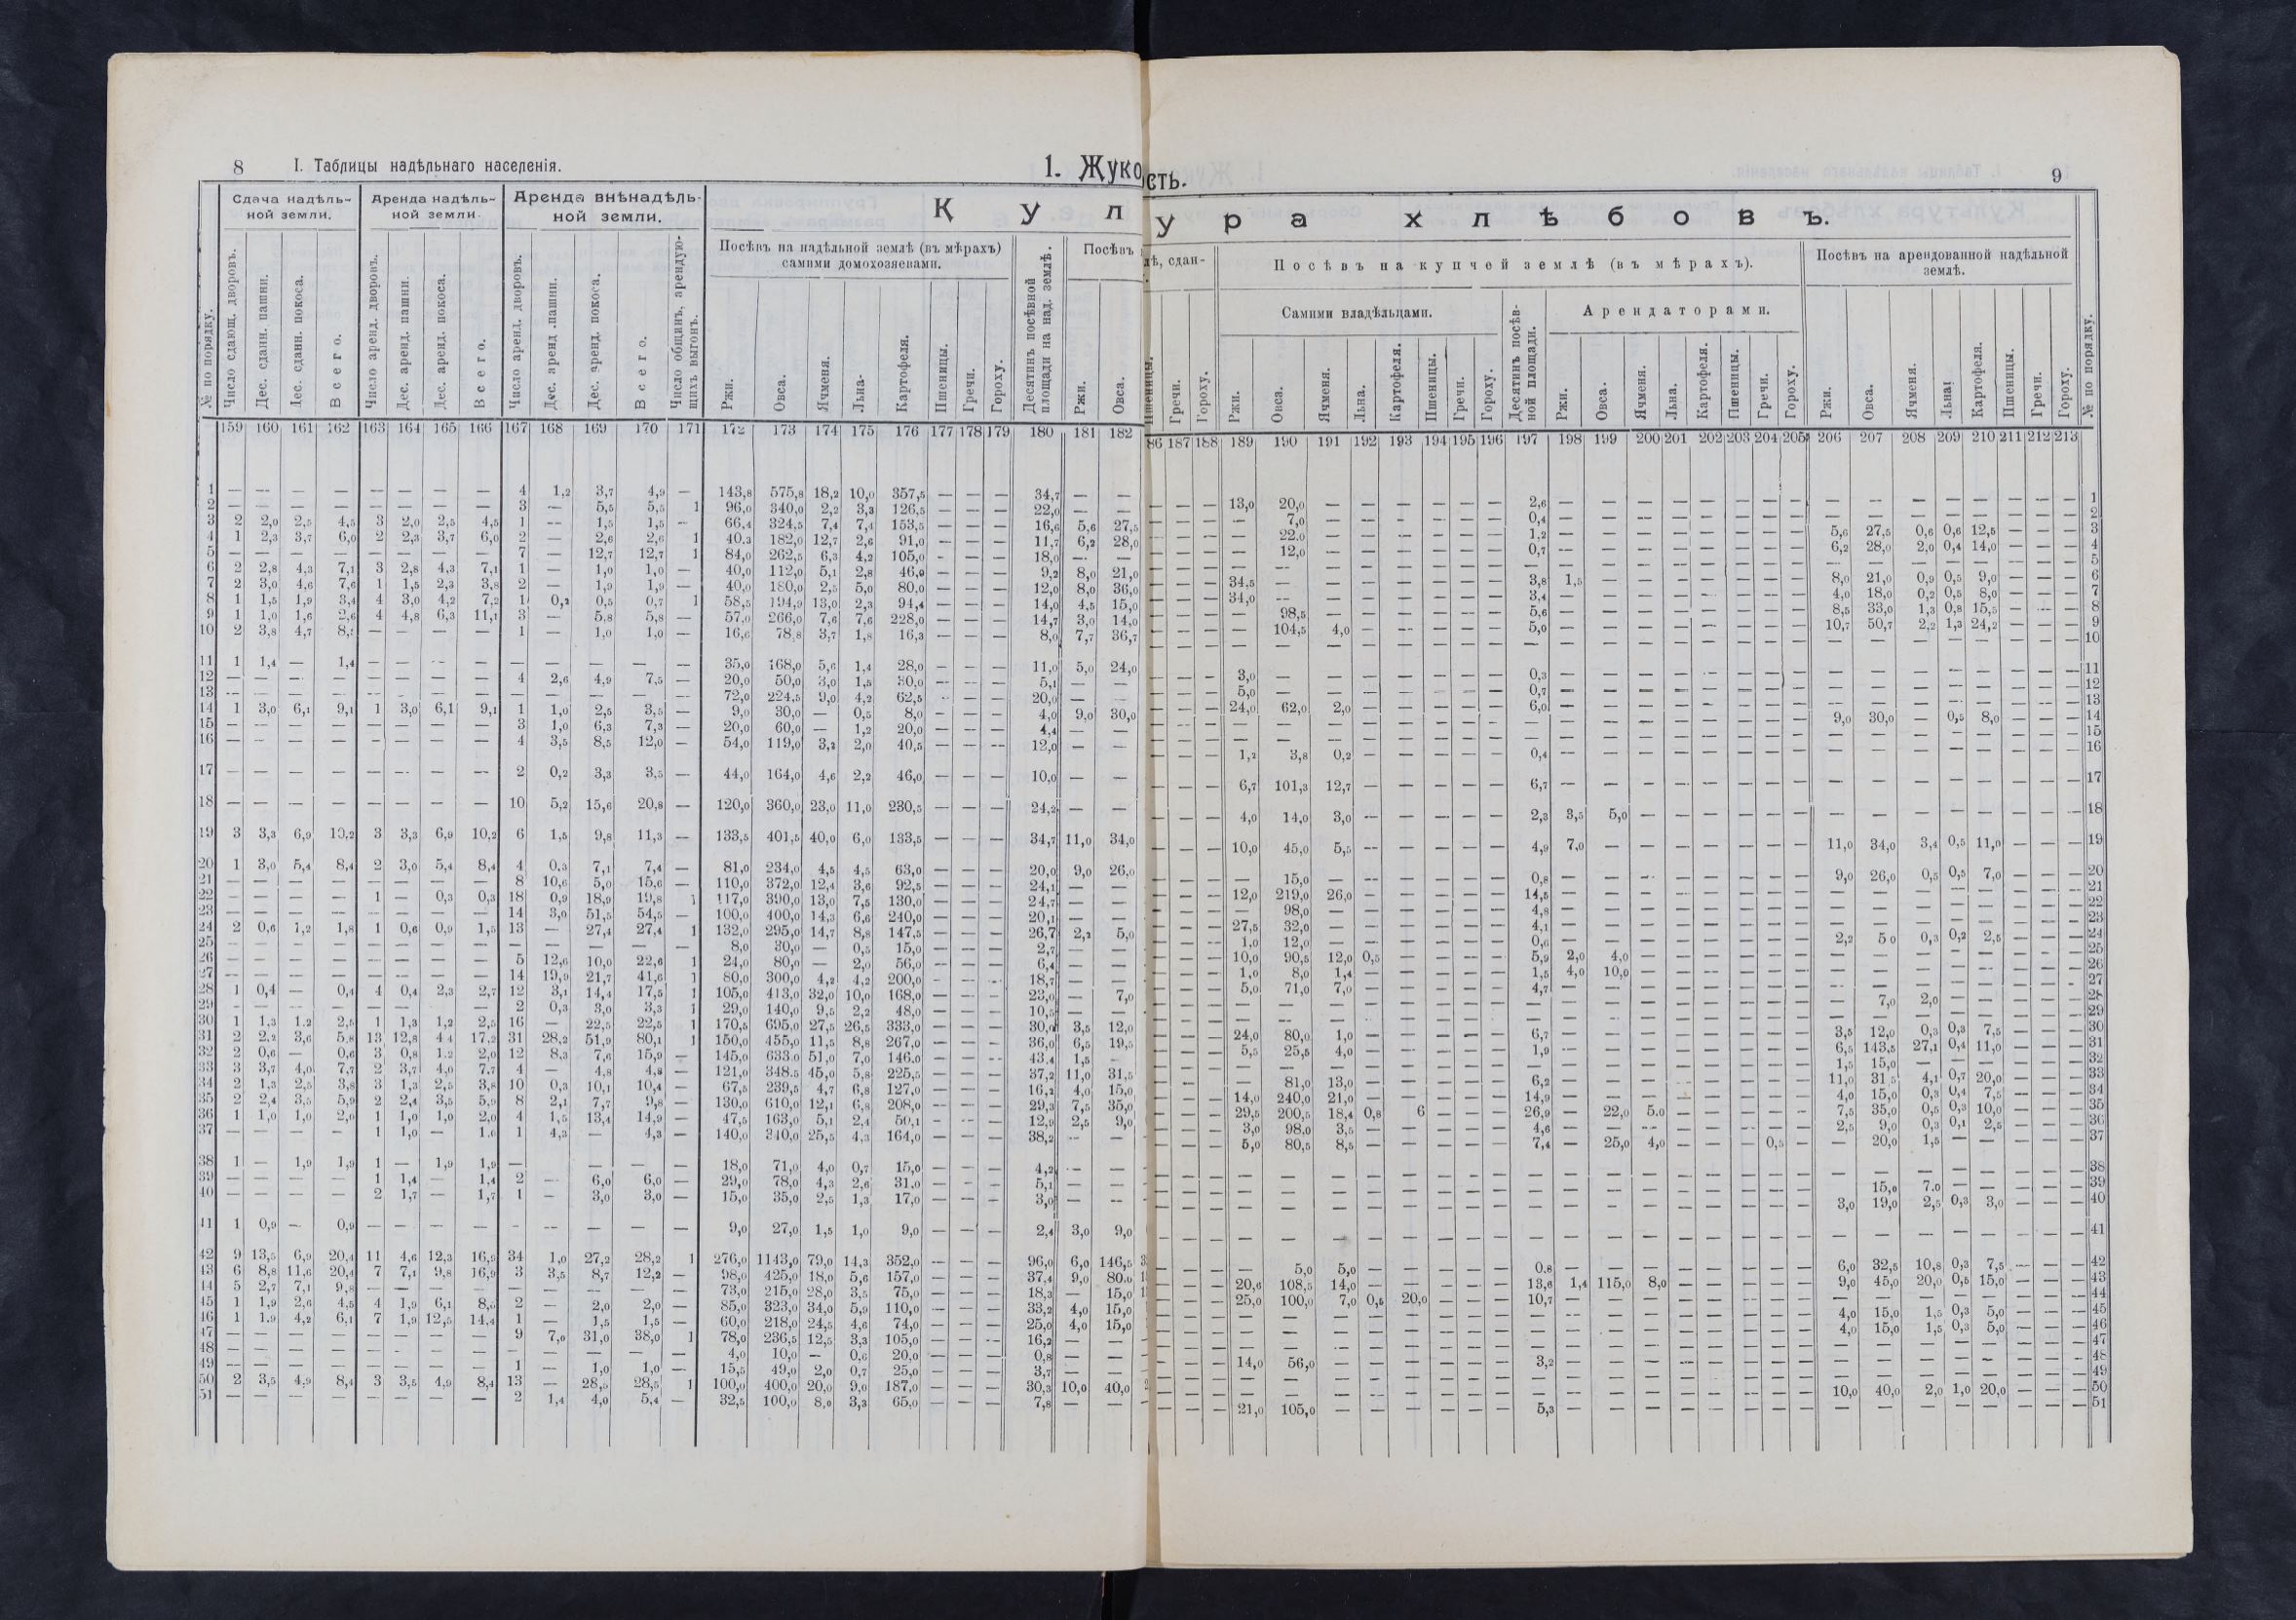 8 I. Таблицы надѣльнаго населенія. 1. Жуко
сть. 9
Сдача надѣль-
ной земли.
Аренда надѣль-
ной земли.
Аренда внѣнадѣль-
ной земли.
К у л
у р а х л ѣ б о в ъ.
Посѣвъ на надѣльной землѣ (въ мѣрахъ)
самими домохозяевами.
Посѣвъ
лѣ, сдан-
Посѣвъ на купчей землѣ (въ мѣрахъ).
Посѣвъ на арендованной надѣльной
землѣ.
Самими владѣльцами.
Арендаторами.
№ по порядку.
Число сдающ. дворовъ.
Дес. сданн. пашни.
Дес. сданн. покоса.
Всего.
Число аренд. дворовъ.
Дес. аренд. пашни.
Дес. аренд. покоса.
Всего.
Число аренд. дворовъ.
Дес. аренд. пашни.
Дес. аренд. покоса.
Всего.
Число общинъ, арендую-
щихъ выгонъ.
Ржи.
Овса.
Ячменя.
Льна.
Картофеля.
Пшеницы.
Гречи.
Гороху.
Десятинъ посѣвной
площади на над. землѣ.
Ржи.
Овса.
Пшеницы.
Гречи.
Гороху.
Ржи.
Овса.
Ячменя.
Льна.
Картофеля.
Пшеницы.
Гречи.
Гороху.
Десятинъ посѣв-
ной площади.
Ржи.
Овса.
Ячменя.
Льна.
Картофеля.
Пшеницы.
Гречи.
Гороху.
Ржи.
Овса.
Ячменя.
Льна
Картофеля.
Пшеницы.
Гречи.
Гороху.
№ по порядку.
159 160 161 162 163 164 165 166 167 168 169 170 171 172 173 174 175 176 177 178 179 180 181 182
86 187 188 189 190 191 192 193 194 195 196 197 198 199 200 201 202 203 204 205 206 207 208 209 210 211 212 213
1 — — — — — — — — 4 1,2 3,7 4,9 — 143,8 575,8 18,2 10,0 357,5 — — — 34,7 — —
2 — — — — — — — — 3 — 5,5 5,5 1 96,0 340,0 2,2 3,3 126,5 — — — 22,0 — —
3 2 2,0 2,5 4,5 3 2,0 2,5 4,5 1 — 1,5 1,5 — 66,4 324,5 7,4 7,4 153,5 — — — 16,6 5,6 27,5
4 1 2,3 3,7 6,0 2 2,3 3,7 6,0 2 — 2,6 2,6 1 40,3 182,0 12,7 2,6 91,0 — — — 11,7 6,2 28,0
5 — — — — — — — — 7 — 12,7 12,7 1 84,0 262,5 6,3 4,2 105,0 — — — 18,0 — —
6 2 2,8 4,3 7,1 3 2,8 4,3 7,1 1 — 1,0 1,0 — 40,0 112,0 5,1 2,8 46,0 — — — 9,2 8,0 21,0
7 2 3,0 4,6 7,6 1 1,5 2,3 3,8 2 — 1,9 1,9 — 40,0 180,0 2,5 5,0 80,0 — — — 12,0 8,0 36,0
8 1 1,5 1,9 3,4 4 3,0 4,2 7,2 1 0,2 0,5 0,7 1 58,5 194,9 13,0 2,3 94,4 — — — 14,0 4,5 15,0
9 1 1,0 1,6 2,6 4 4,8 6,3 11,1 3 — 5,8 5,8 — 57,0 266,0 7,6 7,6 228,0 — — — 14,7 3,0 14,0
10 2 3,8 4,7 — — — — 1 — 1,0 1,0 — 16,6 78,8 3,7 1,8 16,3 — — — 8,0 7,7 36,7
11 1 1,4 — 1,4 — — — — — — — — — 35,0 168,0 5,6 1,4 28,0 — — — 11,0 5,0 24,0
12 — — — — — — — — 4 2,6 4,9 7,5 — 20,0 50,0 3,0 1,5 30,0 — — — 5,1 — —
13 — — — — — — — — — — — — — 72,0 224,5 9,0 4,2 62,5 — — — 20,0 — —
14 1 3,0 6,1 9,1 1 3,0 6,1 9,1 1 1,0 2,5 3,5 — 9,0 30,0 — 0,5 8,0 — — — 4,0 9,0 30,0
15 — — — — — — — — 3 1,0 6,3 7,3 — 20,0 60,0 — 1,2 20,0 — — — 4,4 — —
16 — — — — — — — — 4 3,5 8,5 12,0 — 54,0 119,0 3,2 2,0 40,5 — — — 12,0 — —
17 — — — — — — — — 2 0,2 3,3 3,5 — 44,0 164,0 4,6 2,2 46,0 — — — 10,0 — —
18 — — — — — — — — 10 5,2 15,6 20,8 — 120,0 360,0 23,0 11,0 230,5 — — — 24,2 — —
19 3 3,3 6,9 10,2 3 3,3 6,9 10,2 6 1,5 9,8 11,3 — 133,5 401,5 40,0 6,0 133,5 — — — 34,7 11,0 34,0
20 1 3,0 5,4 8,4 2 3,0 5,4 8,4 4 0,3 7,1 7,4 — 81,0 234,0 4,5 4,5 63,0 — — — 20,0 9,0 26,0
21 — — — — — — — — 8 10,6 5,0 15,6 — 110,0 372,0 12,4 3,6 92,5 — — — 24,1 — —
22 — — — — 1 — 0,3 0,3 18 0,9 18,9 19,8 1 117,0 390,0 13,0 7,5 130,0 — — — 24,7 — —
23 — — — — — — — — 14 3,0 51,5 54,5 — 100,0 400,0 14,3 6,6 240,0 — — — 20,1 — —
24 2 0,6 1,2 1,8 1 0,6 0,9 1,5 13 — 27,4 27,4 1 132,0 295,0 14,7 8,8 147,5 — — — 26,7 2,2 5,0
25 — — — — — — — — — — — — — 8,0 30,0 — 0,5 15,0 — — — 2,7 — —
26 — — — — — — — — 5 12,6 10,0 22,6 1 24,0 80,0 — 2,0 56,0 — — — 6,4 — —
27 — — — — — — — — 14 19,9 21,7 41,6 1 80,0 300,0 4,2 4,2 200,0 — — — 18,7 — —
28 1 0,4 — 0,4 4 0,4 2,3 2,7 12 3,1 14,4 17,5 1 105,0 413,0 32,0 10,0 168,0 — — — 23,0 — 7,0
29 — — — — — — — — 2 0,3 3,0 3,3 1 29,0 140,0 9,5 2,2 48,0 — — — 10,5 — —
30 1 1,3 1,2 2,5 1 1,3 1,2 2,5 16 — 22,5 22,5 1 170,5 695,0 27,5 26,5 333,0 — — — 30,0 3,5 12,0
31 2 2,2 3,6 5,8 13 12,8 4,4 17,2 31 28,2 51,9 80,1 1 150,0 455,0 11,5 8,8 267,0 — — — 36,0 6,5 19,5
32 2 0,6 — 0,6 3 0,8 1,2 2,0 12 8,3 7,6 15,9 — 145,0 633,0 51,0 7,0 146,0 — — — 43,4 1,5 —
33 3 3,7 4,0 7,7 2 3,7 4,0 7,7 4 — 4,8 4,8 — 121,0 348,5 45,0 5,8 225,5 — — — 37,2 11,0 31,5
34 2 1,3 2,5 3,8 3 1,3 2,5 3,8 10 0,3 10,1 10,4 — 67,5 239,5 4,7 6,8 127,0 — — — 16,2 4,0 15,0
35 2 2,4 3,5 5,9 2 2,4 3,5 5,9 8 2,1 7,7 9,8 — 130,0 610,0 12,1 6,8 208,0 — — — 29,3 7,5 35,0
36 1 1,0 1,0 2,0 1 1,0 1,0 2,0 4 1,5 13,4 14,9 — 47,5 163,0 5,1 2,4 50,1 — — — 12,9 2,5 9,0
37 — — — — 1 1,0 — 1,0 1 4,3 — 4,3 — 140,0 340,0 25,5 4,3 164,0 — — — 38,2 — —
38 1 — 1,9 1,9 1 — 1,9 1,9 — — — — — 18,0 71,0 4,0 0,7 15,0 — — — 4,2 — —
39 — — — — 1 1,4 — 1,4 2 — 6,0 6,0 — 29,0 78,0 4,3 2,6 31,0 — — — 5,1 — —
40 — — — — 2 1,7 — 1,7 1 — 3,0 3,0 — 15,0 35,0 2,5 1,3 17,0 — — — 3,0 — —
41 1 0,9 — 0,9 — — — — — — — — — 9,0 27,0 1,5 1,0 9,0 — — — 2,4 3,0 9,0
42 9 13,5 6,9 20,4 11 4,6 12,3 16,9 34 1,0 27,2 28,2 1 276,0 1143,0 79,0 14,3 352,0 — — — 96,0 6,0 146,5
43 6 8,8 11,6 20,4 7 7,1 9,8 16,9 3 3,5 8,7 12,2 — 98,0 425,0 18,0 5,6 157,0 — — — 37,4 9,0 80,0
44 5 2,7 7,1 9,8 — — — — — — — — — 73,0 215,0 28,0 3,5 75,0 — — — 18,3 — 15,0
45 1 1,9 2,6 4,5 4 1,9 6,1 8,0 2 — 2,0 2,0 — 85,0 323,0 34,0 5,9 110,0 — — — 33,2 4,0 15,0
46 1 1,9 4,2 6,1 7 1,9 12,5 14,4 1 — 1,5 1,5 — 60,0 218,0 24,5 4,6 74,0 — — — 25,0 4,0 15,0
47 — — — — — — — — 9 7,0 31,0 38,0 1 78,0 236,5 12,5 3,3 105,0 — — — 16,2 — —
48 — — — — — — — — — — — — — 4,0 10,0 — 0,6 20,0 — — — 0,8 — —
49 — — — — — — — — 1 — 1,0 1,0 — 15,5 49,0 2,0 0,7 25,0 — — — 3,7 — —
50 2 3,5 4,9 8,4 3 3,5 4,9 8,4 13 — 28,5 28,5 1 100,0 400,0 20,0 9,0 187,0 — — — 30,3 10,0 40,0
51 — — — — — — — — 2 1,4 4,0 5,4 — 32,5 100,0 8,0 3,3 65,0 — — — 7,8 — —
— — — 13,0 20,0 — — — — — — 2,6 — — — — — — — — — — — — — — — — 1
— — — — 7,0 — — — — — — 0,4 — — — — — — — — — — — — — — — — 2
— — — — 22,0 — — — — — — 1,2 — — — — — — — — 5,6 27,5 0,6 0,6 12,5 — — — 3
— — — — 12,0 — — — — — — 0,7 — — — — — — — — 6,2 28,0 2,0 0,4 14,0 — — — 4
— — — — — — — — — — — — — — — — — — — — — — — — — — — — 5
— — — 34,5 — — — — — — — 3,8 1,5 — — — — — — — 8,0 21,0 0,9 0,5 9,0 — — — 6
— — — 34,0 — — — — — — — 3,4 — — — — — — — — 4,0 18,0 0,2 0,5 8,0 — — — 7
— — — — 98,5 — — — — — — 5,6 — — — — — — — — 8,5 33,0 1,3 0,8 15,5 — — — 8
— — — — 104,5 4,0 — — — — — 5,0 — — — — — — — — 10,7 50,7 2,2 1,3 24,2 — — — 9
— — — — — — — — — — — — — — — — — — — — — — — — — — — — 10
— — — 3,0 — — — — — — — 0,3 — — — — — — — — — — — — — — — — 11
— — — 5,0 — — — — — — — 0,7 — — — — — — — — — — — — — — — — 12
— — — 24,0 62,0 2,0 — — — — — 6,0 — — — — — — — — — — — — — — — — 13
— — — — — — — — — — — — — — — — — — — — 9,0 30,0 — 0,5 8,0 — — — 14
— — — — — — — — — — — — — — — — — — — — — — — — — — — — 15
— — — 1,2 3,8 0,2 — — — — — 0,4 — — — — — — — — — — — — — — — — 16
— — — 6,7 101,3 12,7 — — — — — 6,7 — — — — — — — — — — — — — — — — 17
— — — 4,0 14,0 3,0 — — — — — 2,3 3,5 5,0 — — — — — — — — — — — — — — 18
— — — 10,0 45,0 5,5 — — — — — 4,9 7,0 — — — — — — — 11,0 34,0 3,4 0,5 11,0 — — — 19
— — — — 15,0 — — — — — — 0,8 — — — — — — — — 9,0 26,0 0,5 0,5 7,0 — — — 20
— — — 12,0 219,0 26,0 — — — — — 14,5 — — — — — — — — — — — — — — — — 21
— — — — 98,0 — — — — — — 4,8 — — — — — — — — — — — — — — — — 22
— — — 27,5 32,0 — — — — — — 4,1 — — — — — — — — — — — — — — — — 23
— — — 1,0 12,0 — — — — — — 0,6 — — — — — — — — 2,2 5 0 0,3 0,2 2,5 — — — 24
— — — 10,0 90,5 12,0 0,5 — — — — 5,9 2,0 4,0 — — — — — — — — — — — — — — 25
— — — 1,0 8,0 1,4 — — — — — 1,5 4,0 10,0 — — — — — — — — — — — — — — 26
— — — 5,0 71,0 7,0 — — — — — 4,7 — — — — — — — — — — — — — — — — 27
— — — — — — — — — — — — — — — — — — — — — 7,0 2,0 — — — — — 28
— — — — — — — — — — — — — — — — — — — — — — — — — — — — 29
— — — 24,0 80,0 1,0 — — — — — 6,7 — — — — — — — — 3,5 12,0 0,3 0,3 7,5 — — — 30
— — — 5,5 25,5 4,0 — — — — — 1,9 — — — — — — — — 6,5 143,5 27,1 0,4 11,0 — — — 31
— — — — — — — — — — — — — — — — — — — — 1,5 15,0 — — — — — — 32
— — — — 81,0 13,0 — — — — — 6,2 — — — — — — — — 11,0 31 5 4,1 0,7 20,0 — — — 33
— — — 14,0 240,0 21,0 — — — — — 14,9 — — — — — — — — 4,0 15,0 0,3 0,4 7,5 — — — 34
— — — 29,5 200,5 18,4 0,8 6 — — — 26,9 — 22,0 5,0 — — — — — 7,5 35,0 0,5 0,3 10,0 — — — 35
— — — 3,0 98,0 3,5 — — — — — 4,6 — — — — — — — — 2,5 9,0 0,3 0,1 2,5 — — — 36
— — — 5,0 80,5 8,5 — — — — — 7,4 — 25,0 4,0 — — — 0,5 — — 20,0 1,5 — — — — — 37
— — — — — — — — — — — — — — — — — — — — — — — — — — — — 38
— — — — — — — — — — — — — — — — — — — — — 15,0 7,0 — — — — — 39
— — — — — — — — — — — — — — — — — — — — 3,0 19,0 2,5 0,3 3,0 — — — 40
— — — — — — — — — — — — — — — — — — — — — — — — — — — — 41
— — — — 5,0 5,0 — — — — — 0,8 — — — — — — — — 6,0 32,5 10,8 0,3 7,5 — — — 42
— — — 20,6 108,5 14,0 — — — — — 13,6 1,4 115,0 8,0 — — — — — 9,0 45,0 20,0 0,5 15,0 — — — 43
— — — 25,0 100,0 7,0 0,5 20,0 — — — 10,7 — — — — — — — — — — — — — — — — 44
— — — — — — — — — — — — — — — — — — — — 4,0 15,0 1,5 0,3 5,0 — — — 45
— — — — — — — — — — — — — — — — — — — — 4,0 15,0 1,5 0,3 5,0 — — — 46
— — — — — — — — — — — — — — — — — — — — — — — — — — — — 47
— — — 14,0 56,0 — — — — — — 3,2 — — — — — — — — — — — — — — — — 48
— — — — — — — — — — — — — — — — — — — — — — — — — — — — 49
— — — — — — — — — — — — — — — — — — — — 10,0 40,0 2,0 1,0 20,0 — — — 50
— — — 21,0 105,0 — — — — — — 5,3 — — — — — — — — — — — — — — — — 51